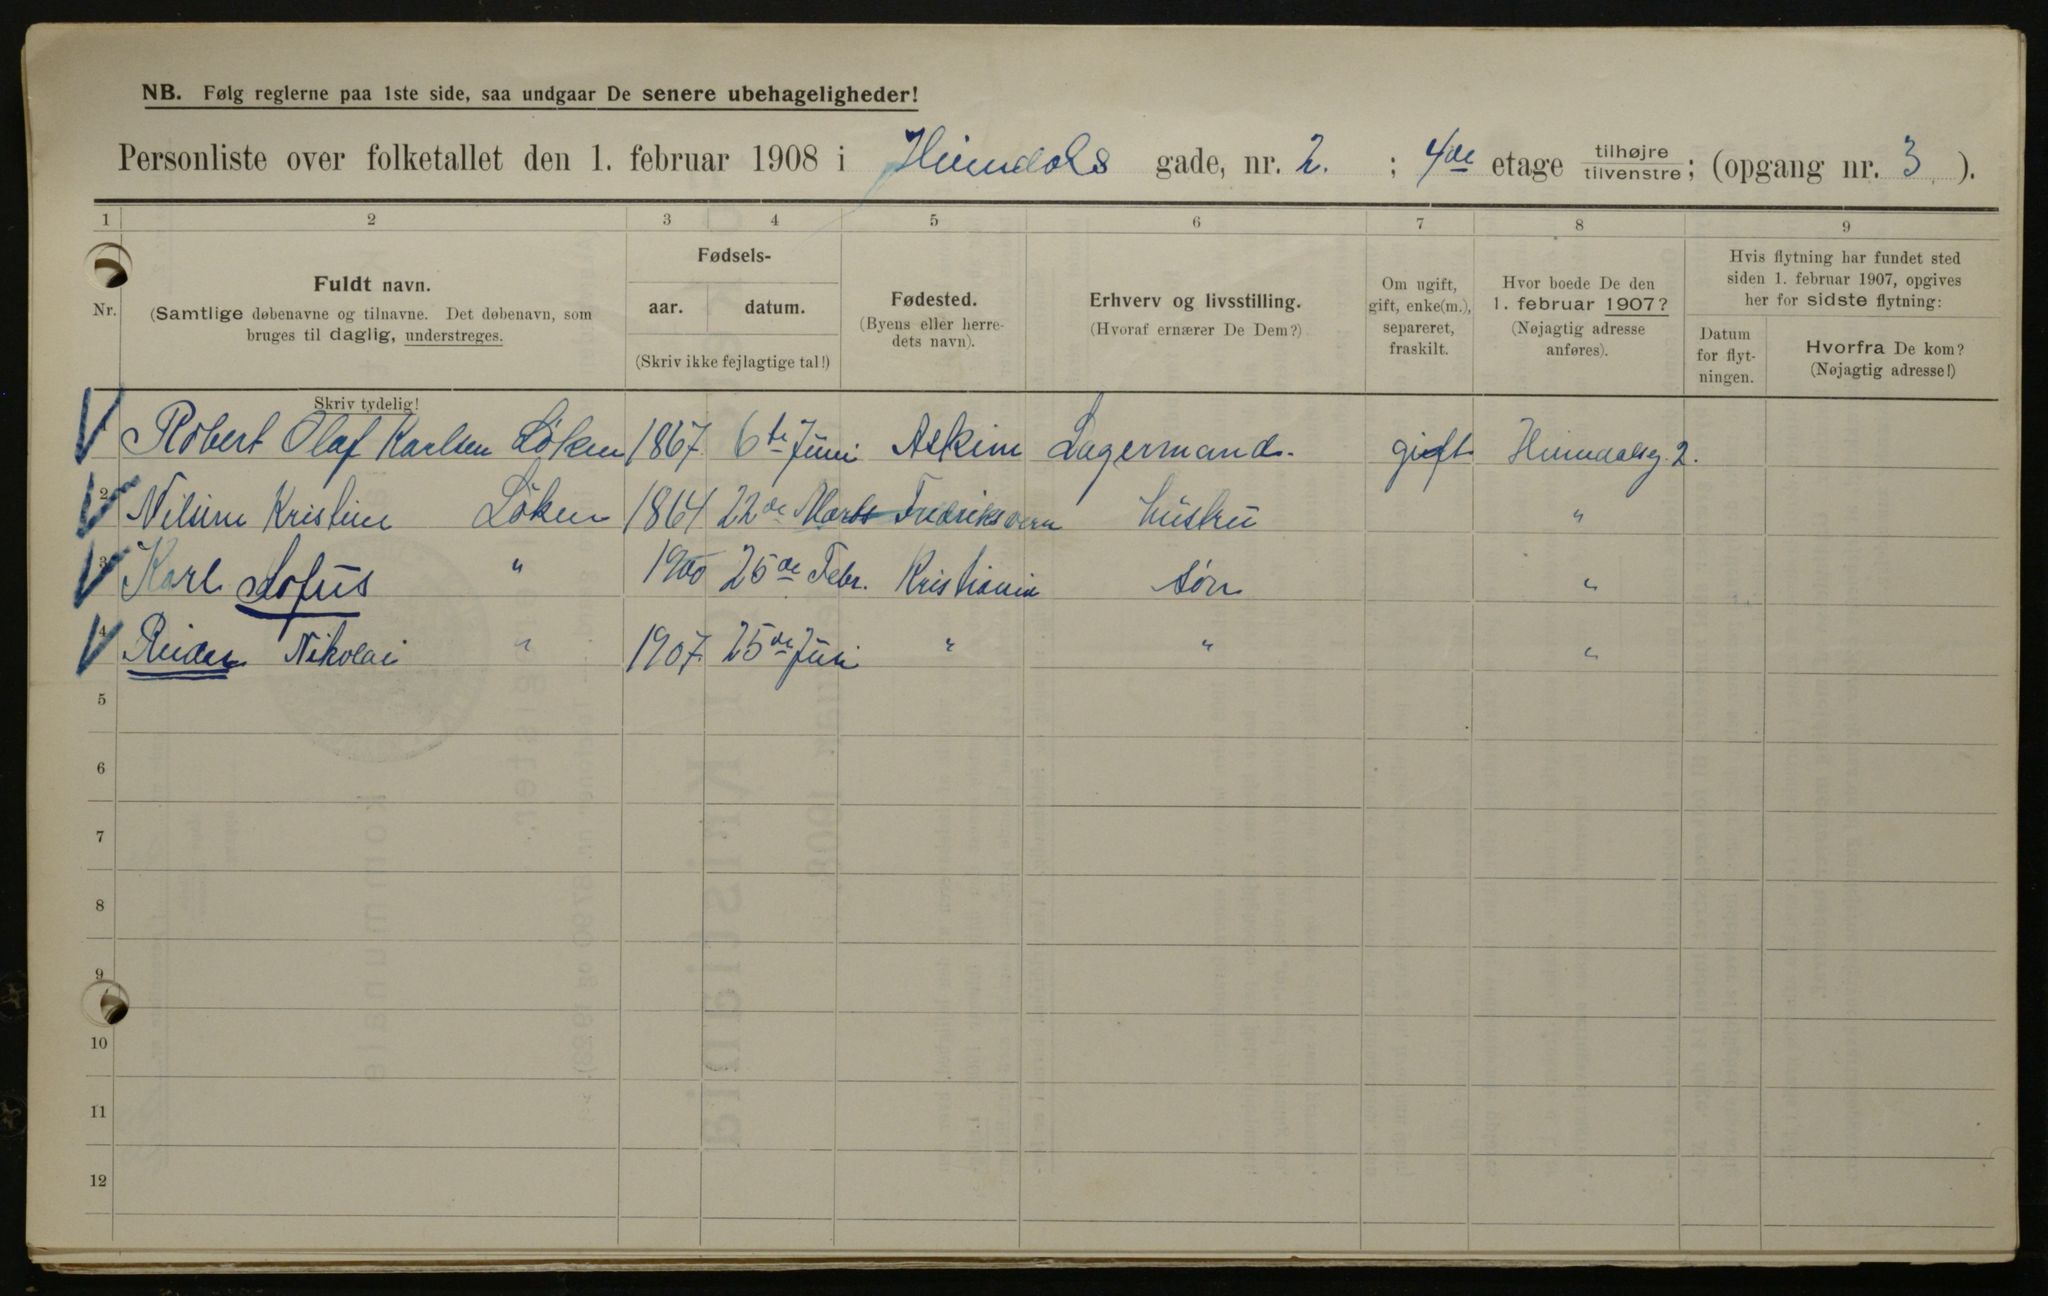 NB. Følg reglerne paa 1ste side, saa undgaar De senere ubehageligheder!
Personliste over folketallet den 1. februar 1908 i Heimdals gade, nr. 2. ; 4de etage tilhøjre / tilvenstre; (opgang nr. 3 ).
1 2 3 4 5 6 7 8 9
Nr.
Fuldt navn.
(Samtlige døbenavne og tilnavne. Det døbenavn, som
bruges til daglig, understreges.
Skriv tydelig!
Fødsels-
aar. datum.
(Skriv ikke fejlagtige tal!)
Fødested.
(Byens eller herre-
dets navn).
Erhverv og livsstilling.
(Hvoraf ernærer De Dem?)
Om ugift,
gift, enke(m.),
separeret,
fraskilt.
Hvor boede De den
1. februar 1907?
(Nøjagtig adresse
anføres).
Hvis flytning har fundet sted
siden 1. februar 1907, opgives
her for sidste flytning:
Datum
for flyt-
ningen.
Hvorfra De kom?
(Nøjagtig adresse!)
Robert Olaf Karlsen Löken 1867 6te Juni Askim Lagermand. gift Heimdalsg. 2.
2 Nilsine Kristine Löken 1864 22de Marts Fredriksværn Hustru "
3 Karl Sofus " 1900 25de Febr. Kristiania Søn "
4 Reidar Nikolai " 1907 25de Juni " " "
5
6
7
8
9
10
11
12